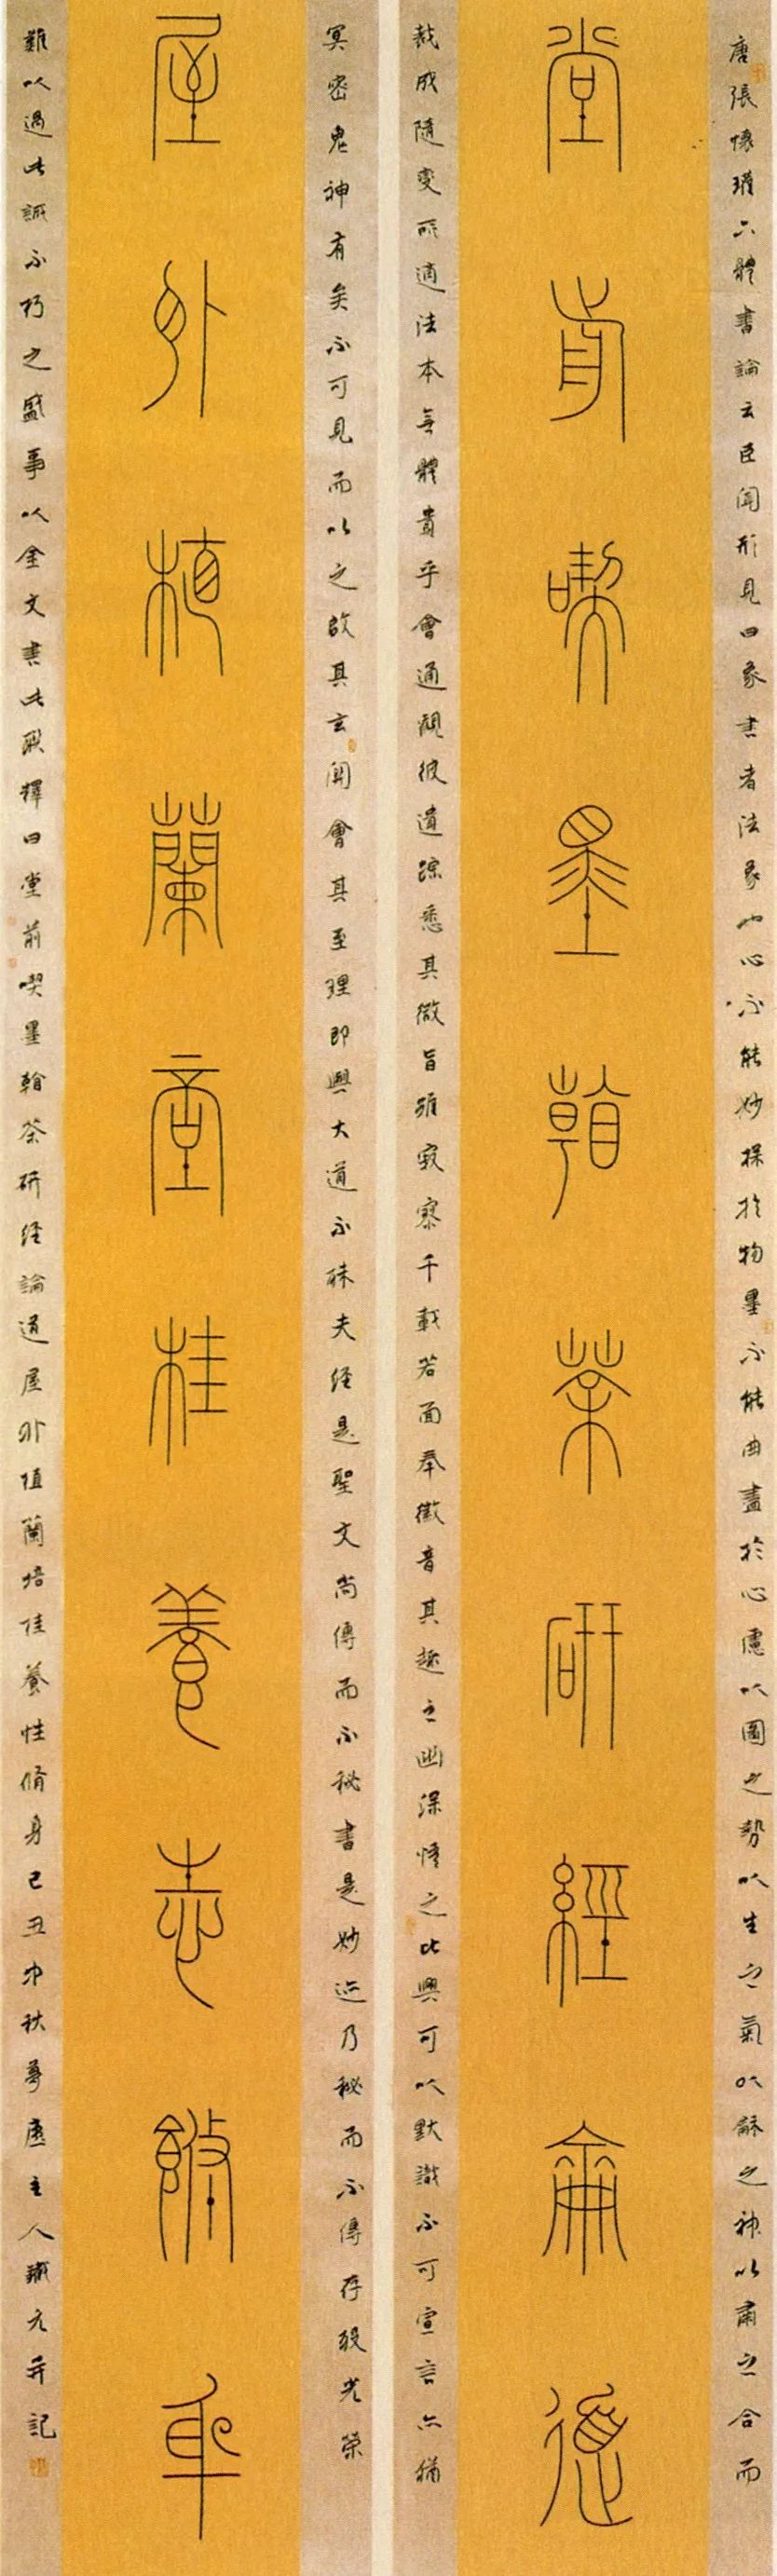 唐張懷瓘六體書論云臣聞形見曰象書者法象也心不能妙探於物墨不能曲盡於心慮以圖之勢以生之氣以龢之神以肅之合而
堂前喫墨翰茶研經侖道
裁成隨變所適法本無體貴乎會通觀彼遺蹤悉其微旨雖寂寥千載若面奉徽音其趣之幽深情之比興可以默識不可宣言亦猶
冥密鬼神有矣不可見而以之啟其玄關會其至理即與大道不殊夫經是聖文尚傳而不秘書是妙迹乃秘而不傳存歿光榮
屋外植蘭培桂養性脩身
難以過此誠不朽之盛事以金文書此聯釋曰堂前喫墨翰茶研經論道屋外植蘭培桂養性脩身己丑中秋廬主人并記